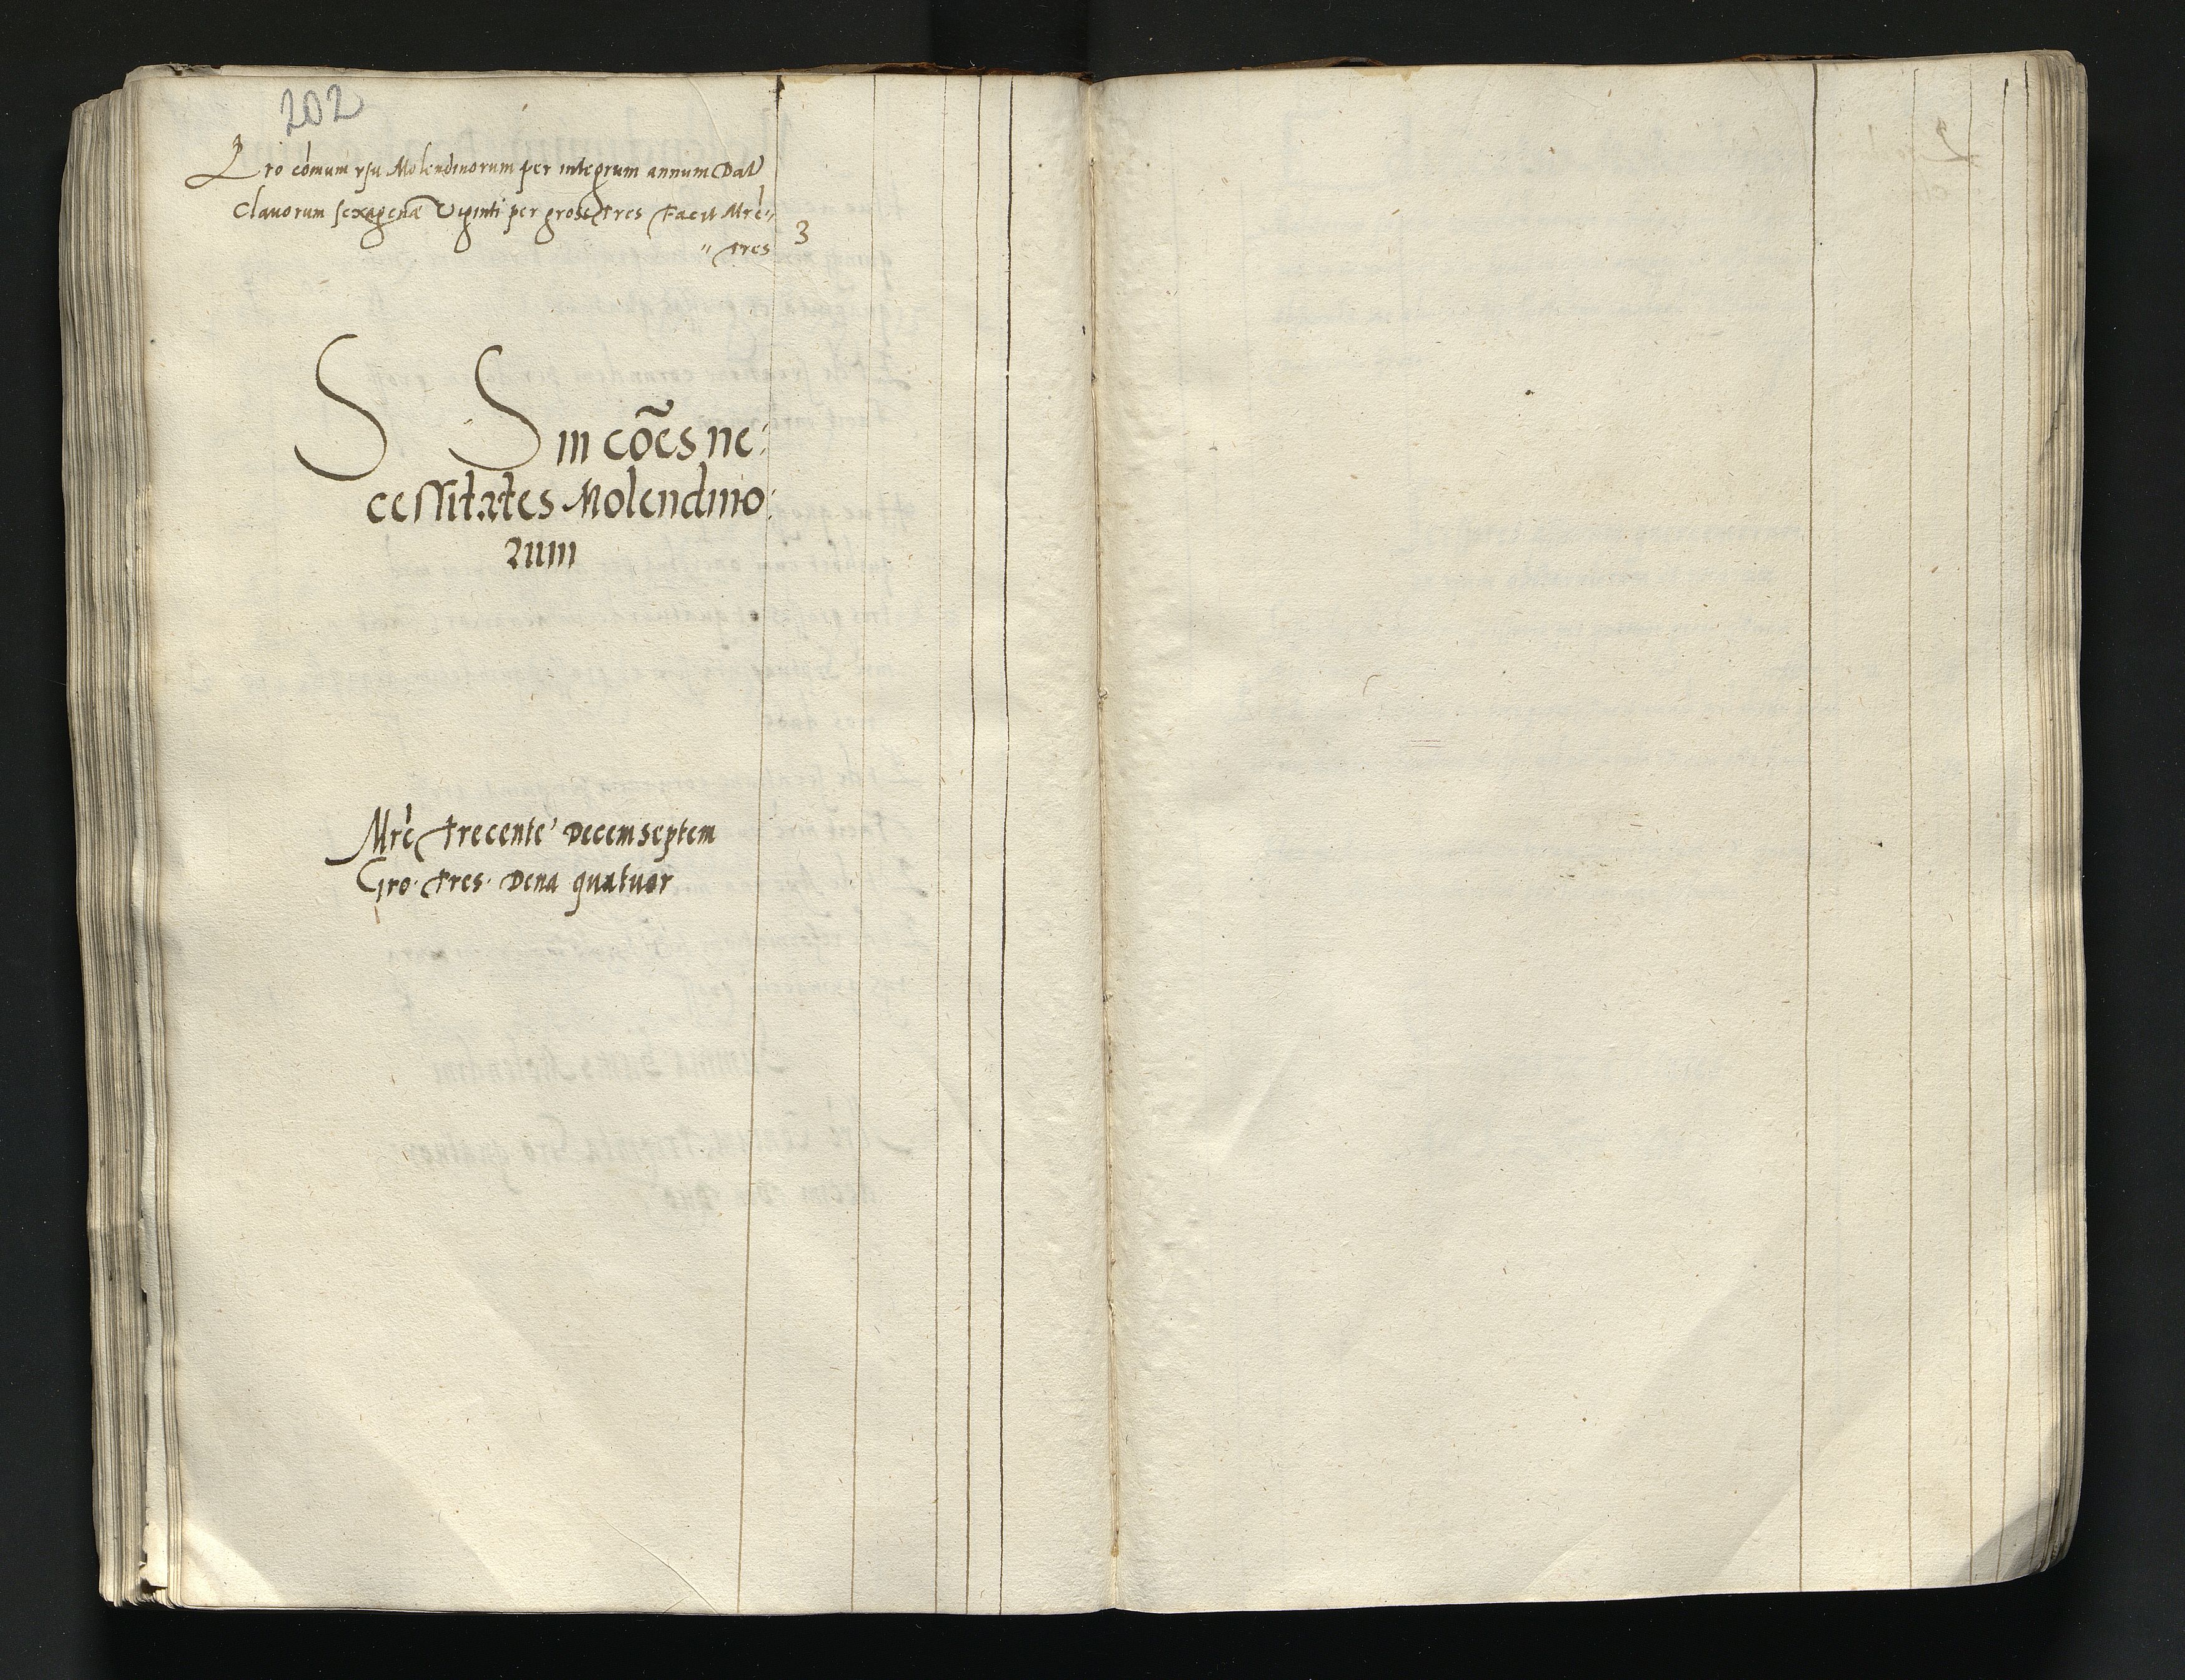 202
Pro cōmum usu Molendinorum per integrum annum Dat
Clavorum sexagenæ Viginti per grosz tres Facit Mrc̄
tres 3
S S in cōēs ne:
cessitates Molendino:
rum
Mrc̄ trecente Decem septem
Gro. tres. Dena quatuor